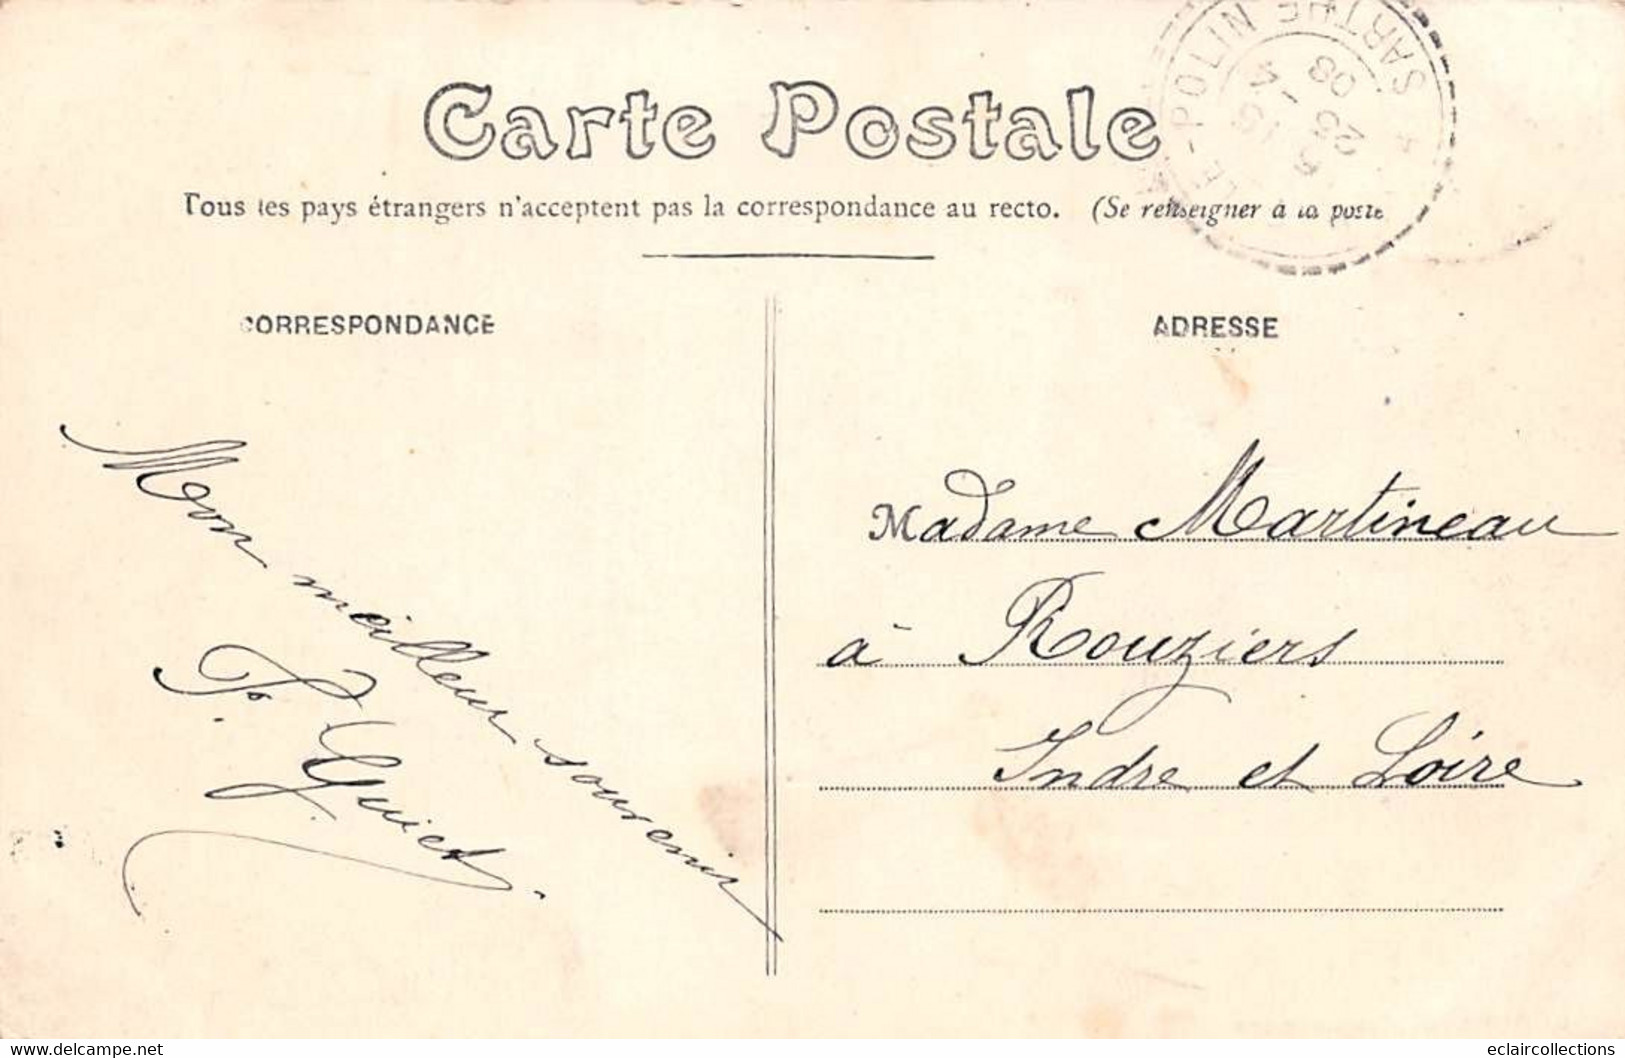 Carte Postale
Tous les pays étrangers n'acceptent pas la correspondance au recto. (Se renseigner à la poste
LE-POLTINE SARTHE
15
23 - 4
08
CORRESPONDANCE
ADRESSE
Mon meilleur souvenir
Guiet.
Madame Martineau
à Rouziers
Indre et Loire
www.delcampe.net
eclaircollections